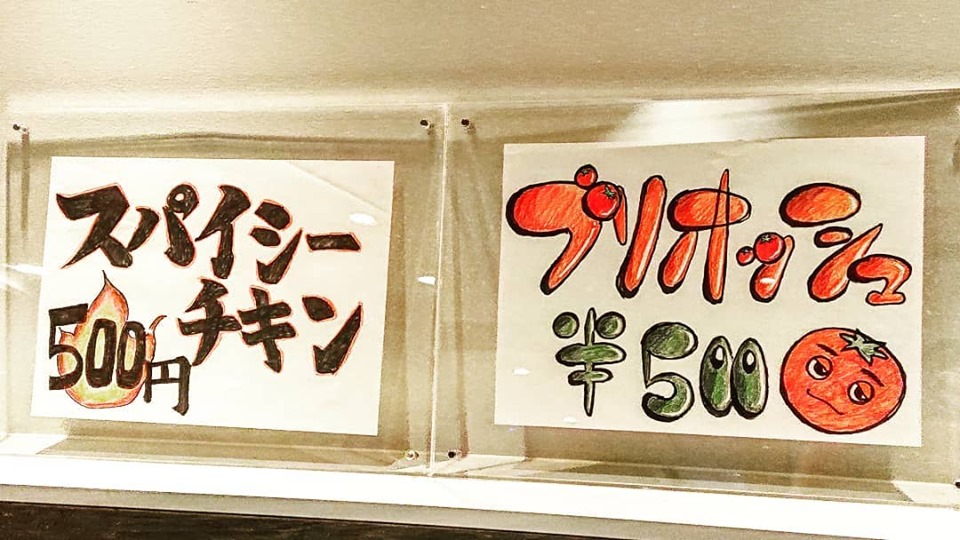 スパイシー
チキン
500円
ブリオッシュ
¥500